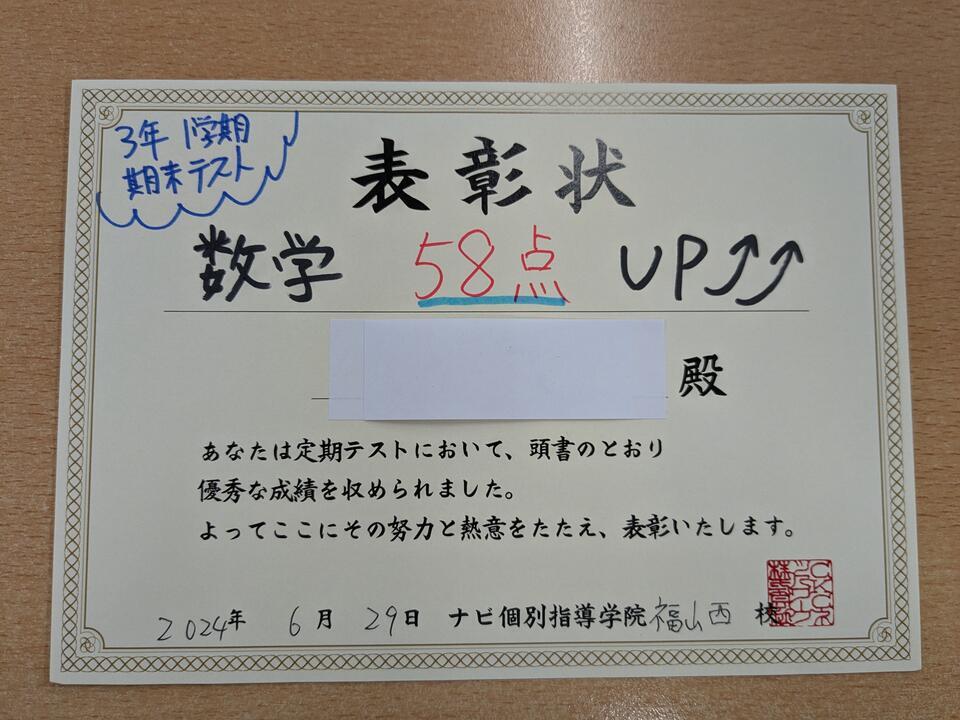 3年 1学期
期末テスト
表彰状
数学 58点 UP⤴⤴
殿
あなたは定期テストにおいて、頭書のとおり
優秀な成績を収められました。
よってここにその努力と熱意をたたえ、表彰いたします。
2024年 6月 29日 ナビ個別指導学院 福山西 校